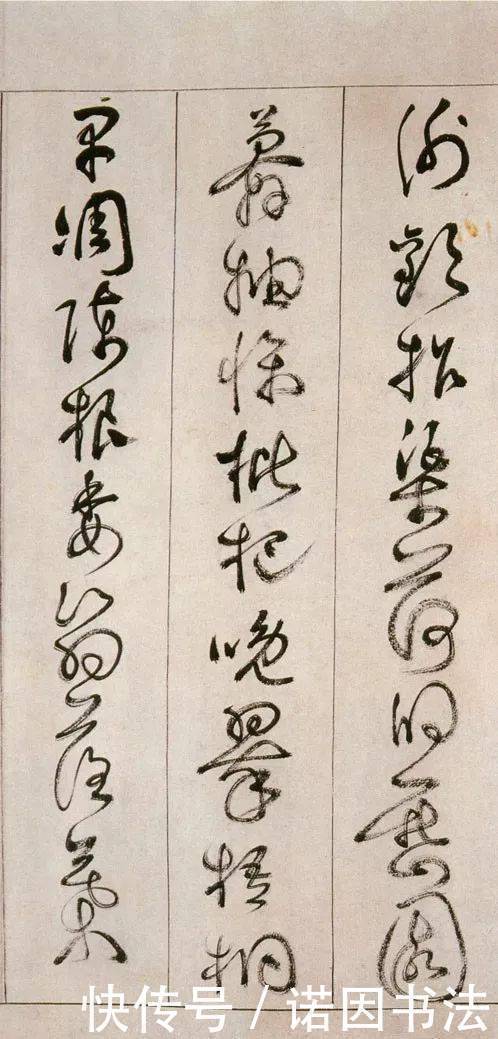 謝歡招渠荷的歷園
莽抽條枇杷晚翠梧桐
早凋陳根委翳落葉
快传号 / 诺因书法